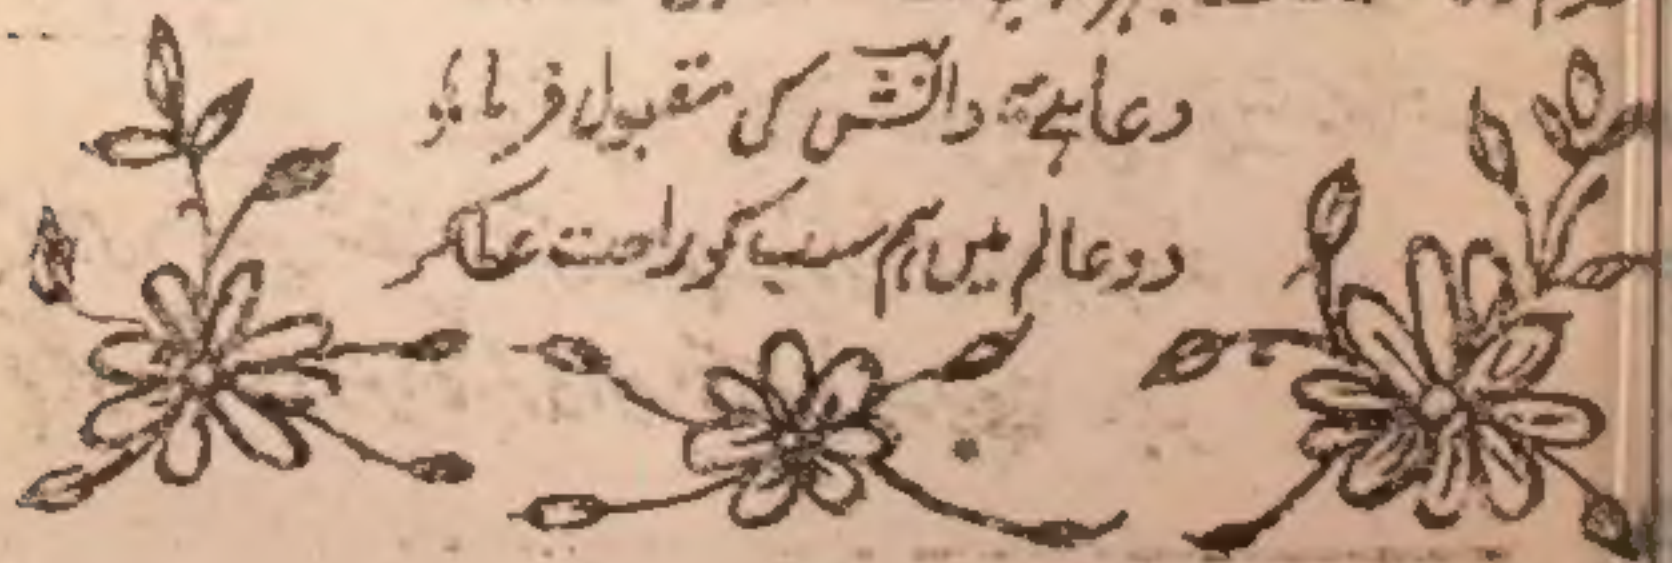 دعا ہے یہ دانشؔ کی مقبول فرما
دو عالم میں ہم سب کو راحت عطا کر